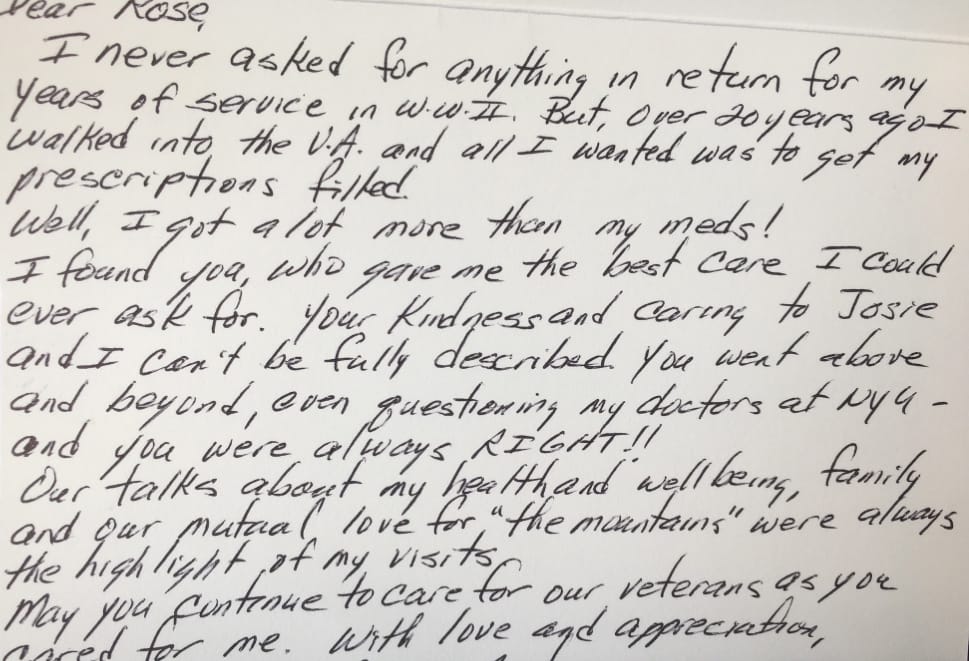 Dear Rose,
I never asked for anything in return for my
years of service in W.W.II. But, over 20 years ago I
walked into the V.A. and all I wanted was to get my
prescriptions filled.
Well, I got a lot more than my meds!
I found you, who gave me the best care I could
ever ask for. Your kindness and caring to Josie
and I can't be fully described. You went above
and beyond, even questioning my doctors at NYU -
and you were always RIGHT!!
Our talks about my health and well being, family
and our mutual love for "the mountains" were always
the highlight of my visits.
May you continue to care for our veterans as you
cared for me. With love and appreciation,